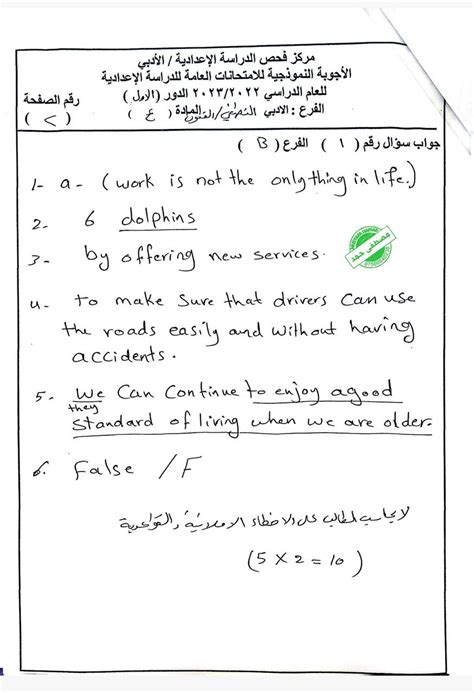 مركز فحص الدراسة الإعدادية / الأدبي
الأجوبة النموذجية للامتحانات العامة للدراسة الإعدادية
للعام الدراسي ٢٠٢٣/٢٠٢٢ الدور (الاول)
رقم الصفحة
الفرع : الادبي المادة ( ع )
( > )
جواب سؤال رقم ( ١ ) الفرع ( B )
1- a- (work is not the only thing in life.)
2. 6 dolphins
3- by offering new services.
مصطفى حمد
4- to make sure that drivers can use
the roads easily and without having
accidents.
5. we can continue to enjoy a good
they
standard of living when we are older.
6. False /F
لا يحاسب الطالب على الاخطاء الاملائية والقواعدية
(5 x 2 = 10 )